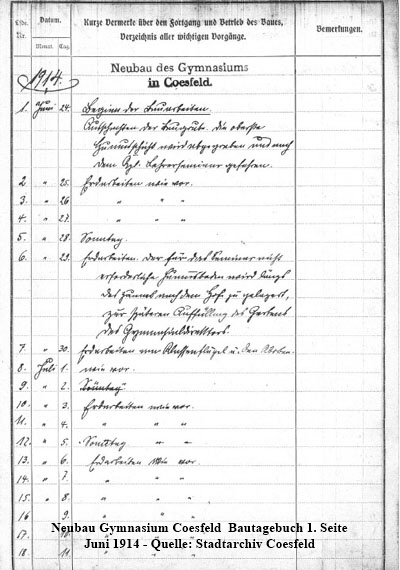 Lfde. Nr. Datum. Kurze Vermerke über den Fortgang und Betrieb des Baues, Bemerkungen.
Monat. Tag. Verzeichnis aller wichtigen Vorgänge.
Neubau des Gymnasiums
in Coesfeld.
1914.
1. Juni 24. Beginn der Bauarbeiten.
Ausschachten der Baugrube. die oberste
Humusschicht wird abgegraben und nach
dem Kgl. Lehrerseminar gefahren.
2 " 25. Erdarbeiten wie vor.
3. " 26 " " "
4. " 27. " " "
5. " 28. Sonntag.
6. " 29. Erdarbeiten. Der für das Seminar nicht
erforderliche Humusboden wird längs
des nach dem Hofe zu gelagert,
zur späteren Auffüllung des Gartens
des Gymnasialdirektors.
7. " 30. Erdarbeiten am Klassenflügel u. den
8. Juli 1. wie vor.
9 " 2. Sonntag
10. " 3. Erdarbeiten wie vor.
11. " 4. " " "
12. " 5. Sonntag " "
13. " 6. Erdarbeiten wie vor.
14. " 7. " " "
15. " 8 " " "
16 " 9. " "
17. 10.
18 " 11
Neubau Gymnasium Coesfeld Bautagebuch 1. Seite
Juni 1914 - Quelle: Stadtarchiv Coesfeld